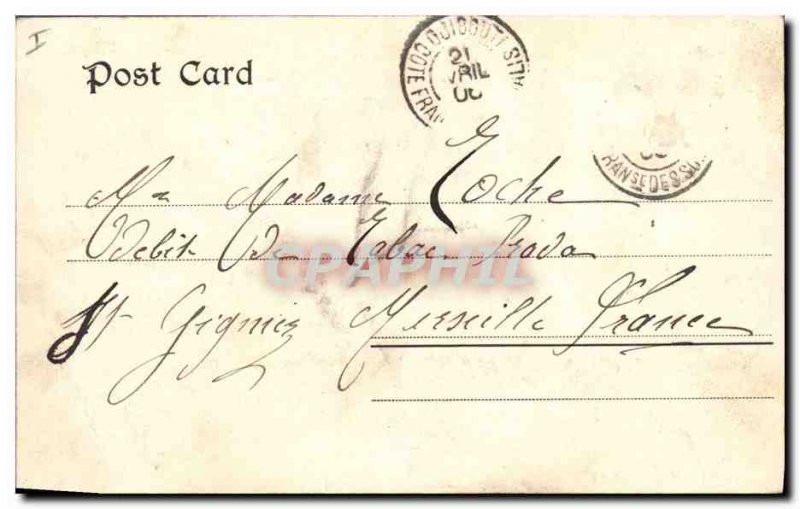 I
Post Card
DJIBOUTI COTE FRAN
21
AVRIL
RANSE DES SO
Madame Roche
Debit De Tabac Prado
St Gignez
Merseille France
CPAPHIL